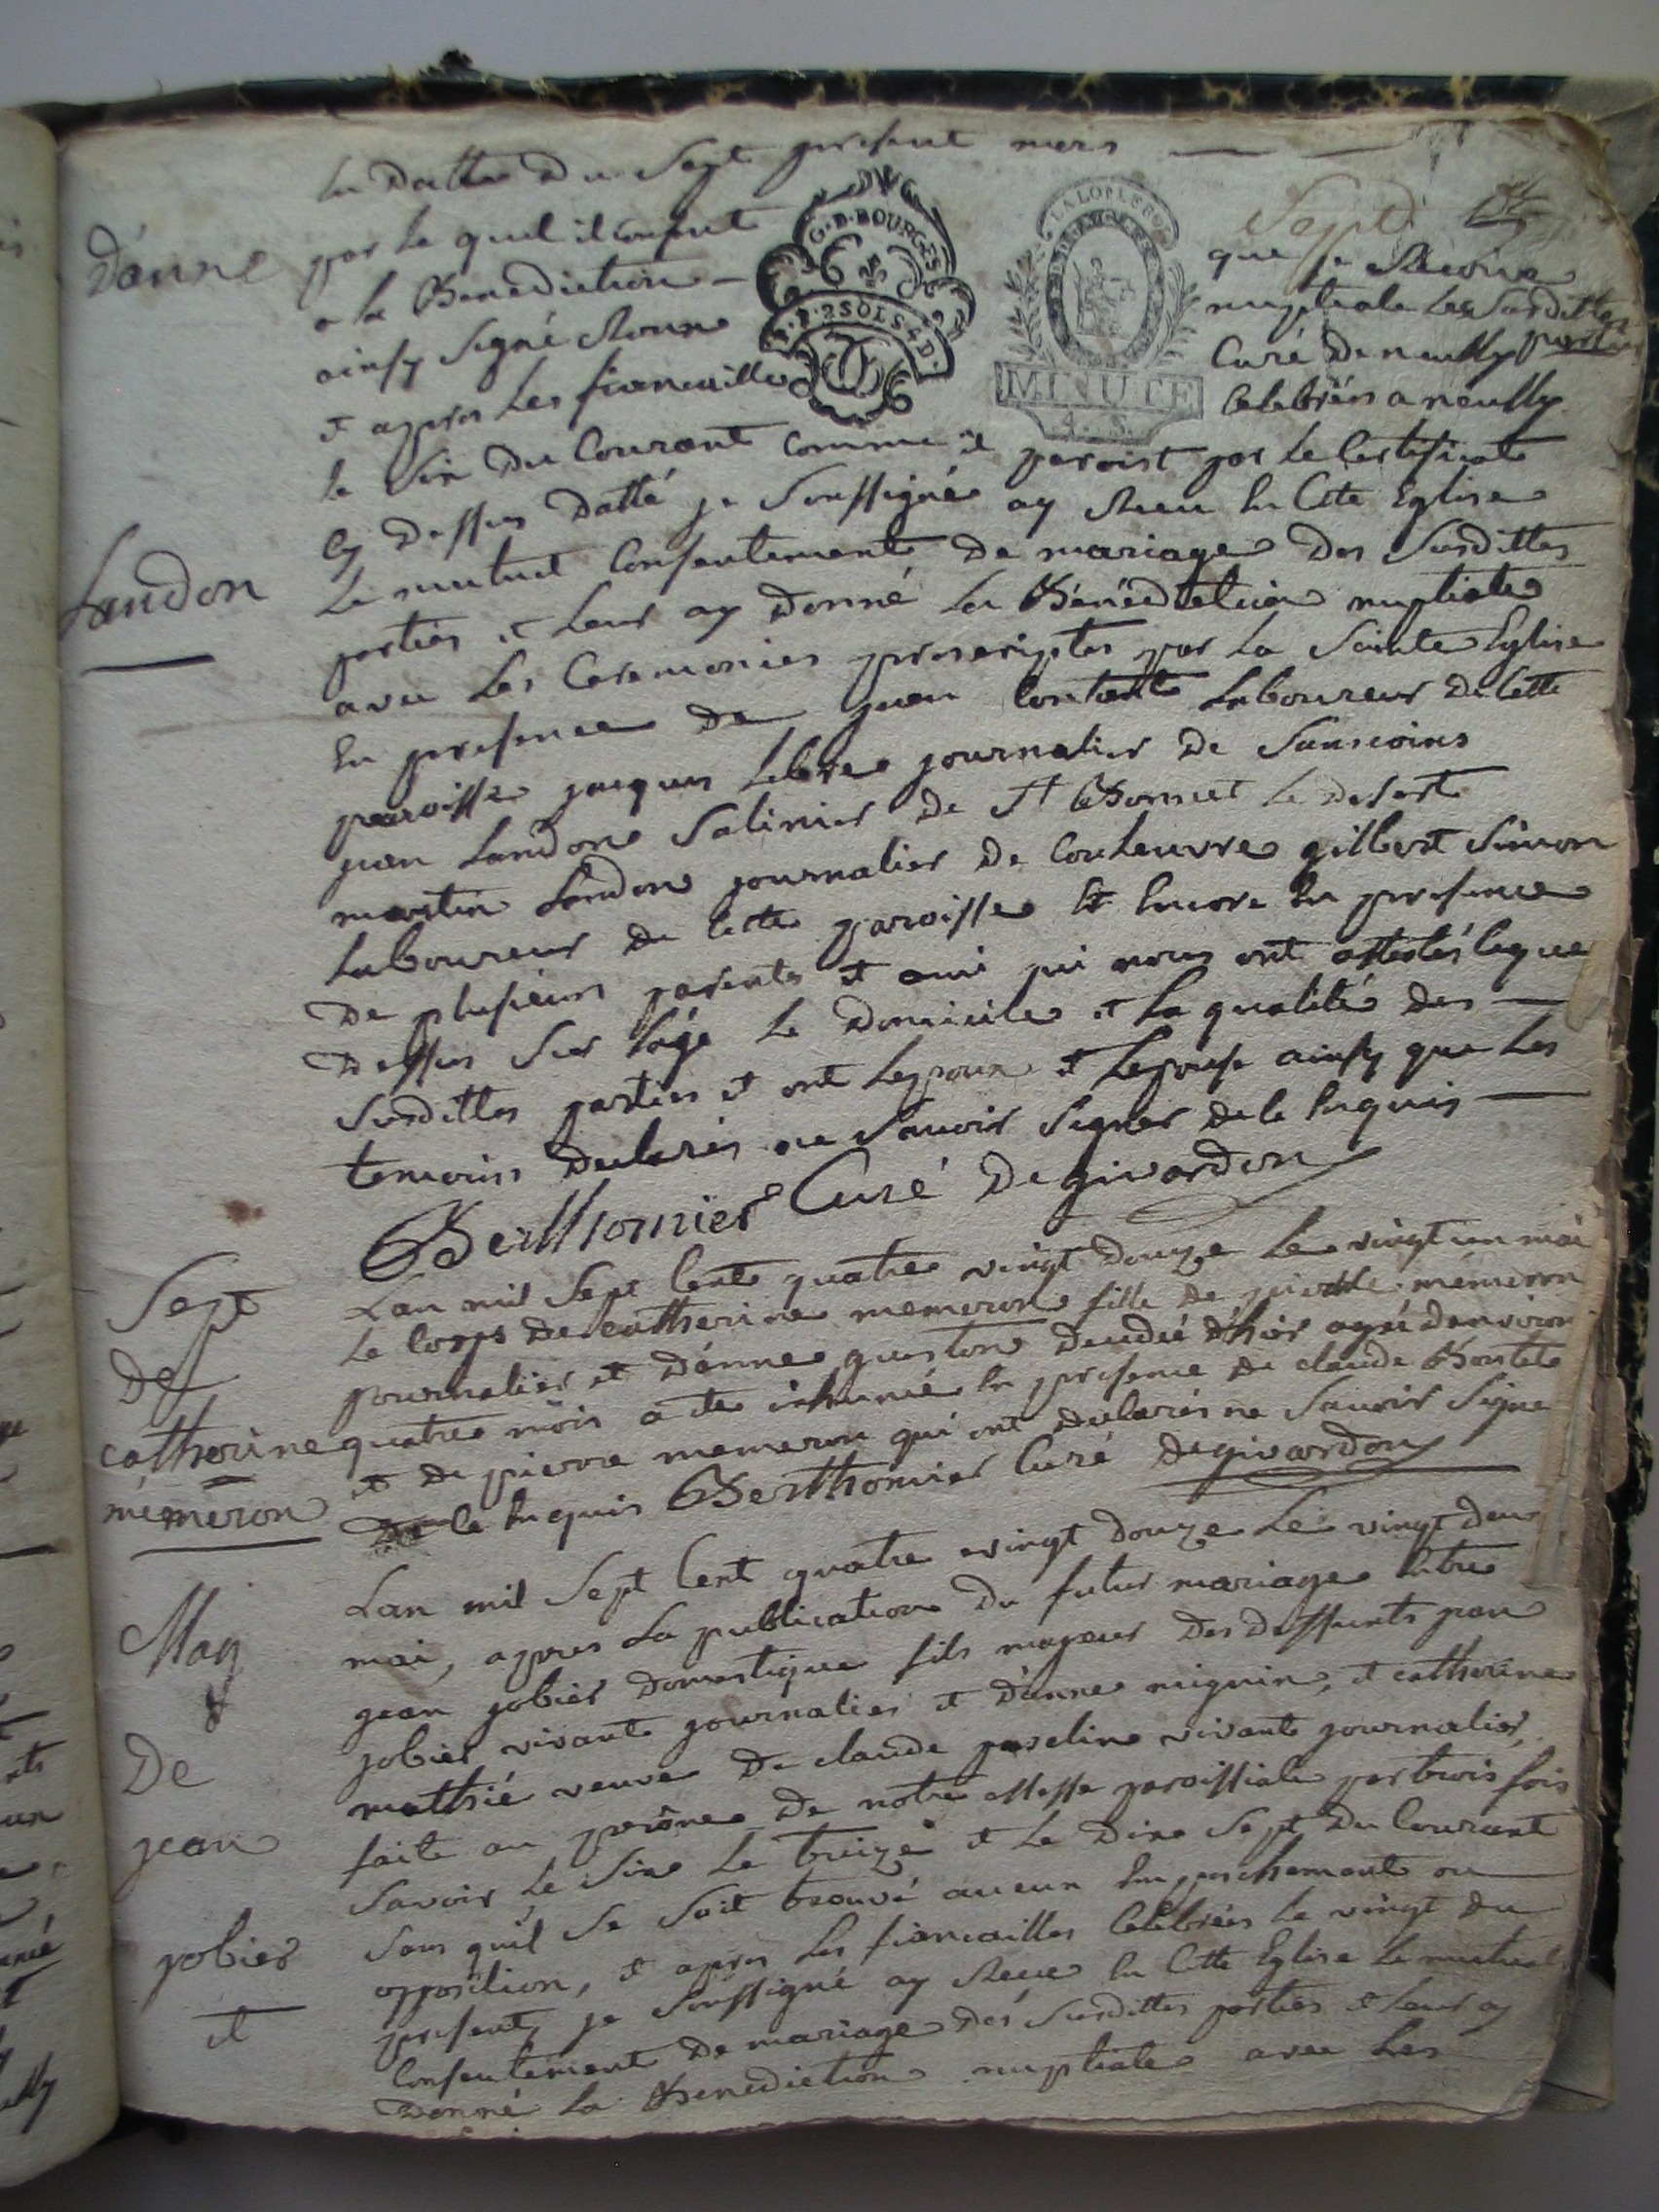 En datte du Sept present mois
Sept
d'anne
par le quel il consent que je donne
a la Benediction nuptiale les Susdittes parties
G.D.BOURGES
2SOLS4D.
LA LOI LE ROI
MINUTE
4.S.
ainsy Signé curé de neully
et apres les fiancailles Celebrées a neully
le Six du Courant comme il paroist par le Certificate
Cy dessus datté je Soussigné ay Receu en Cette Eglise
Landon
Le mutuel Consentement de mariage des Susdittes
parties et Leur ay donné La Bénédiction nuptiale
avec Les Ceremonies prescriptes par La Sainte Eglise
En presence de jean Contant Laboureur de Cette
paroisse jacques Lebre journalier de Sancoins
jean Landon Salinier de St Bonnet Le desert
martin Landon journalier de Couleuvre gilbert Simon
Laboureur de Cette paroisse Et Encore En presence
De plusieurs parents et ami qui nous ont attestés leque
Dessus Sur L'âge Le domicile et La qualité des
Susdittes parties et ont Lepoux et Lepouse ainsy que Les
temoins declarés ne Savoir Signer de ce Enquis
Berthomier Curé De givardon
Sept
de
catherine
mémeron
Lan mil Sept Cent quatre vingt douze Le vingt un mai
Le Corps de catherine memeron fille de pierre memeron
journalier et d'anne gueston décédé d'hier agée denviron
quatre mois a ete inhumé En presence de claude Bontete
et de pierre memeron qui ont declarés ne Savoir Signe
de ce Enquis Berthomier Curé degivardon
Mag
De
jean
jobier
et
Lan mil Sept Cent quatre vingt douze Le vingt deux
mai, apres La publication du futur mariage Entre
jean jobier domestique fils majeur des deffunts jean
jobier vivant journalier et d'anne mignin, et catherine
mathié veuve de claude paselin vivant journalier,
faite au prône de notre Messe paroissiale par trois fois
Savoir Le Six Le treize et Le Dix Sept du Courant
Sans quil Se Soit trouvé aucun Empeschement ou
opposition, et apres Les fiancailles Celebrées Le vingt du
present, je Soussigné ay Receu En Cette Eglise Le mutuel
Consentement de mariage des Susdittes parties et Leur ay
Donné La Benediction nuptiale avec Les